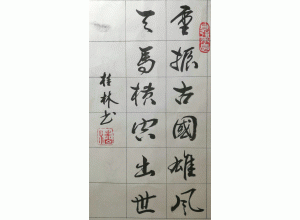 重振古國雄風
天馬橫空出世
桂林书